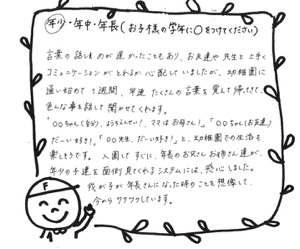 年少・年中・年長(お子様の学年に○をつけてください)
言葉の話し始めが遅かったこともあり、お友達や先生と上手く
コミュニケーションがとれるか心配していましたが、幼稚園に
通い始めて1週間、早速たくさんの言葉を覚えて帰ってきて、
色んな事を話して聞かせてくれます。
「○○ちゃん(自分)、ようちえんせい!ママはお母さん!」「○○ちゃん(お友達)
だーい好き!」「○○先生、だーい好きー!」と、幼稚園での生活も
楽しそうです。入園してすぐに、年長のお兄さんお姉さん達が、
年少の子達を面倒見てくれるシステムには、感心しました。
我が子が年長さんになった時のことを想像して、
今からワクワクしています。
F